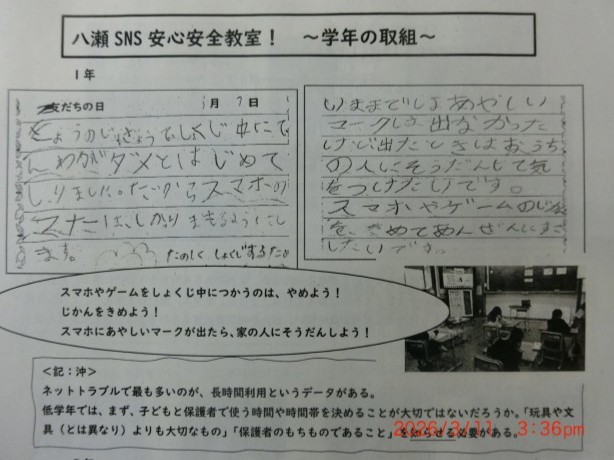 八瀬 SNS 安心安全教室！　～学年の取組～
1年
友だちの日　月7日
きょうのじゅぎょうでしょくじ中にで
んわがダメとはじめて
しりました。だからスマホの
マナーは、しっかりまもるようにし
ます。
たのしくしょくじするため
いままでしょあやしい
マークしか出なかった
けど出たときはおうち
の人にそうだんして気
をつけたいです。
スマホやゲームのじかん
を、きめてあんぜんにすご
したいです。
スマホやゲームをしょくじ中につかうのは、やめよう！
じかんをきめよう！
スマホにあやしいマークが出たら、家の人にそうだんしよう！
＜記：沖＞
ネットトラブルで最も多いのが、長時間利用というデータがある。
低学年では、まず、子どもと保護者で使う時間や時間帯を決めることが大切ではないだろうか。「玩具や文
具（とは異なり）よりも大切なもの」「保護者のもちものであること」を知らせる必要がある。
2026/3/11 3:36pm